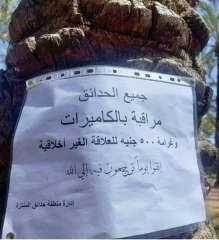 جميع الحدائق
مراقبة بالكاميرات
وغرامة ٥٠٠ جنيه للعلاقة الغير أخلاقية
اتقوا يوماً ترجعون فيه إلي الله
إدارة منطقة حدائق المنتزة